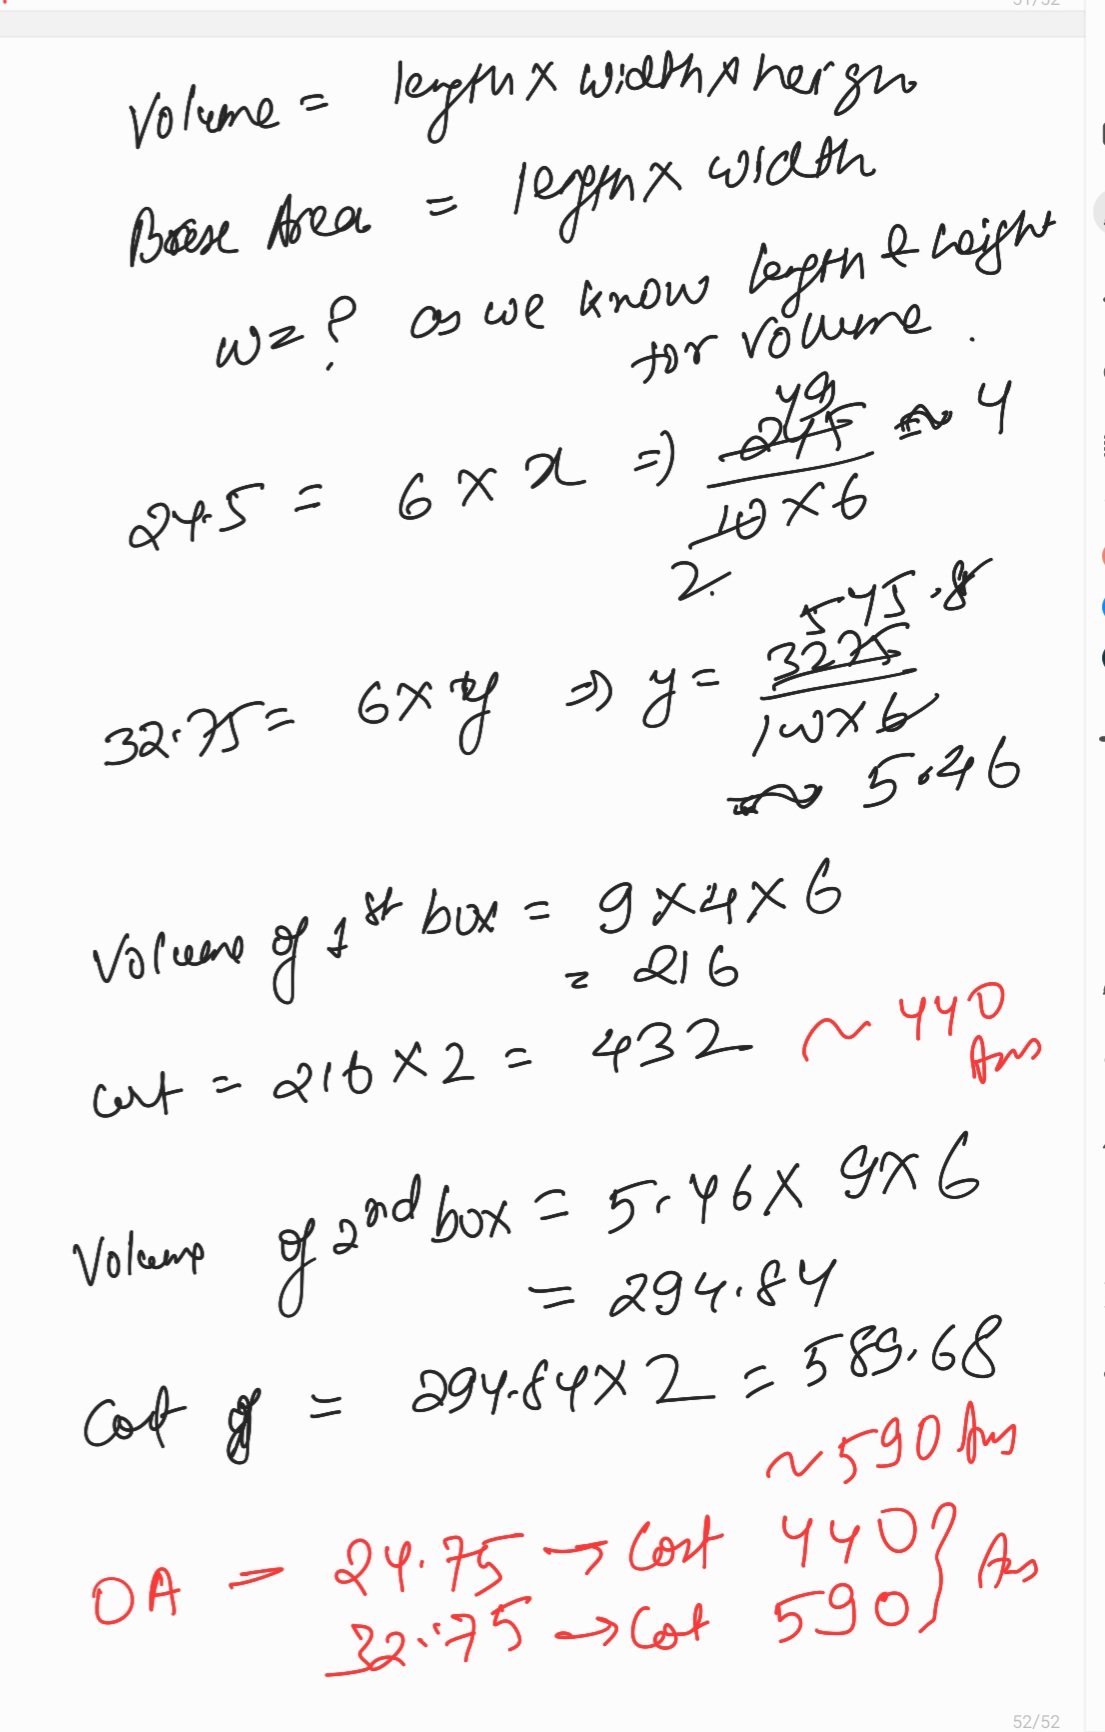 51/52
Volume = length x width x heigh
Base Area = length x width
w = ? as we know length & height
for volume.
24.5 = 6 x x => 49 245 / 10 x 6 2 ≈ 4
32.75 = 6 x y => y = 545.8 3275 / 100 x 6
≈ 5.46
Volume of 1st box = 9 x 4 x 6
= 216
cost = 216 x 2 = 432 ~ 440
Ans
Volume of 2nd box = 5.46 x 9 x 6
= 294.84
Cost of = 294.84 x 2 = 589.68
~ 590 Ans
OA - 24.75 → Cost 440 } Ans
32.75 → Cost 590
52/52